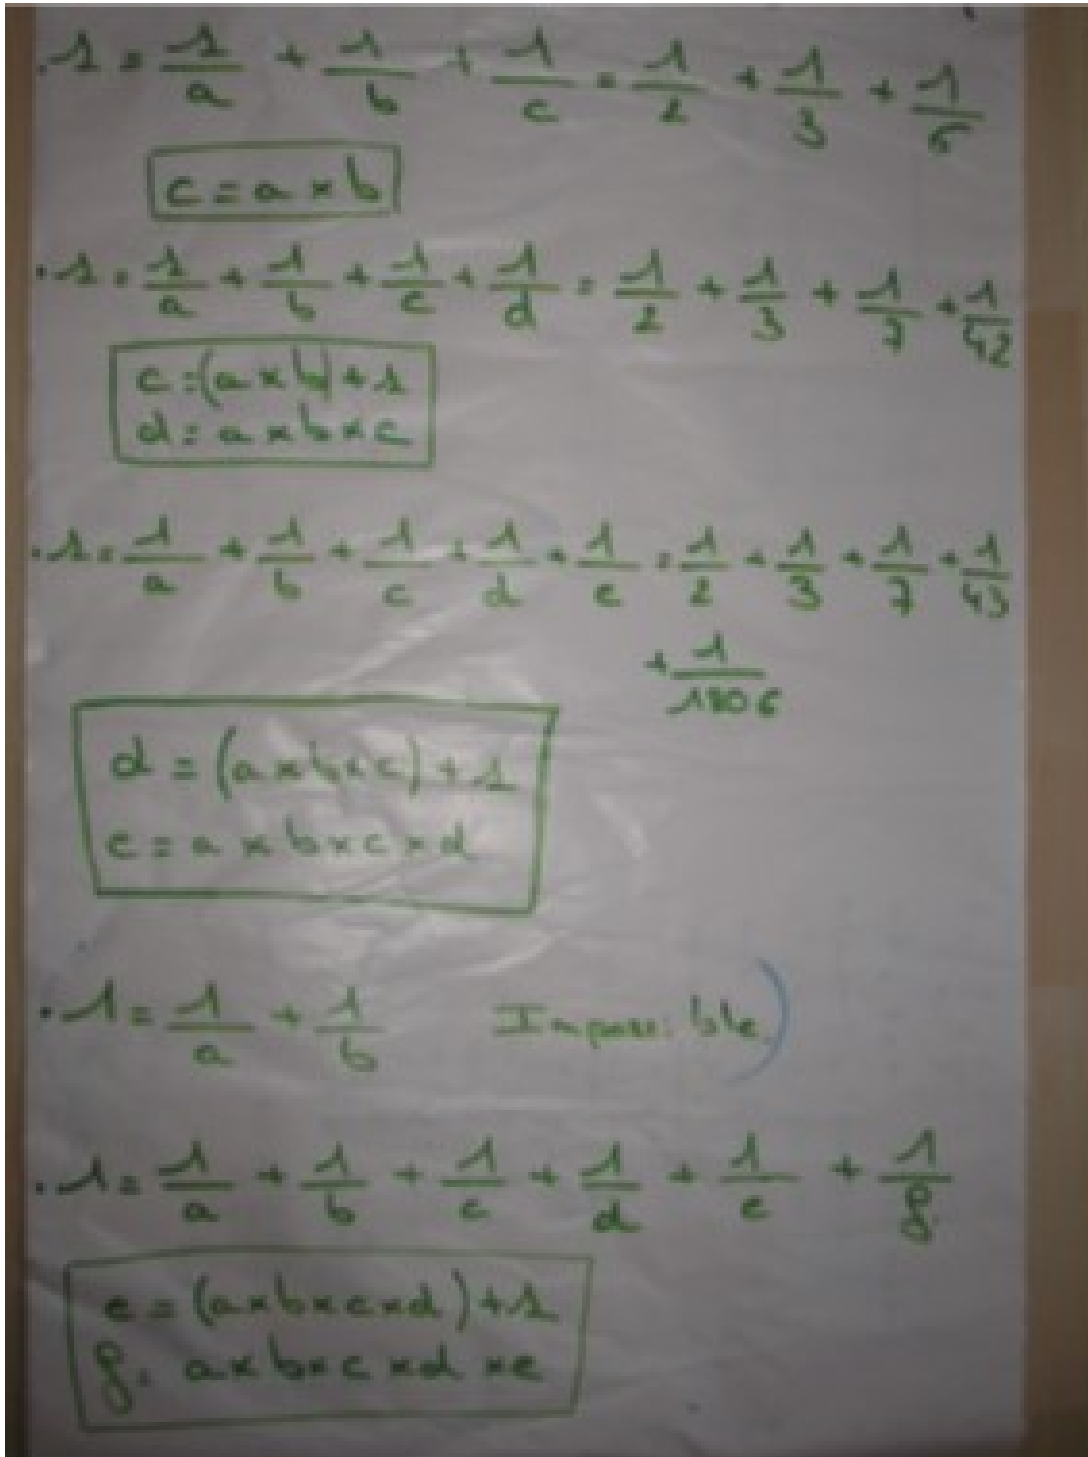 . 1 = 1/a + 1/b + 1/c = 1/2 + 1/3 + 1/6
c = a × b
. 1 = 1/a + 1/b + 1/c + 1/d = 1/2 + 1/3 + 1/7 + 1/42
c = (a × b) + 1
d = a × b × c
. 1 = 1/a + 1/b + 1/c + 1/d + 1/e = 1/2 + 1/3 + 1/7 + 1/43
+ 1/1806
d = (a × b × c) + 1
e = a × b × c × d
. 1 = 1/a + 1/b Impossible)
. 1 = 1/a + 1/b + 1/c + 1/d + 1/e + 1/f
e = (a × b × c × d) + 1
f = a × b × c × d × e